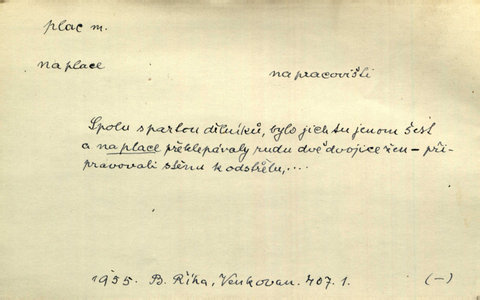 plac m.
na place
na pracovišti
Spolu s partou dělníků, bylo jich tu jenom šest
a na place překlepávaly rudu dvě dvojice žen – při-
pravovali stěnu k odstřelu,...
1955. B. Říha, Venkovan. 407. 1. (–)